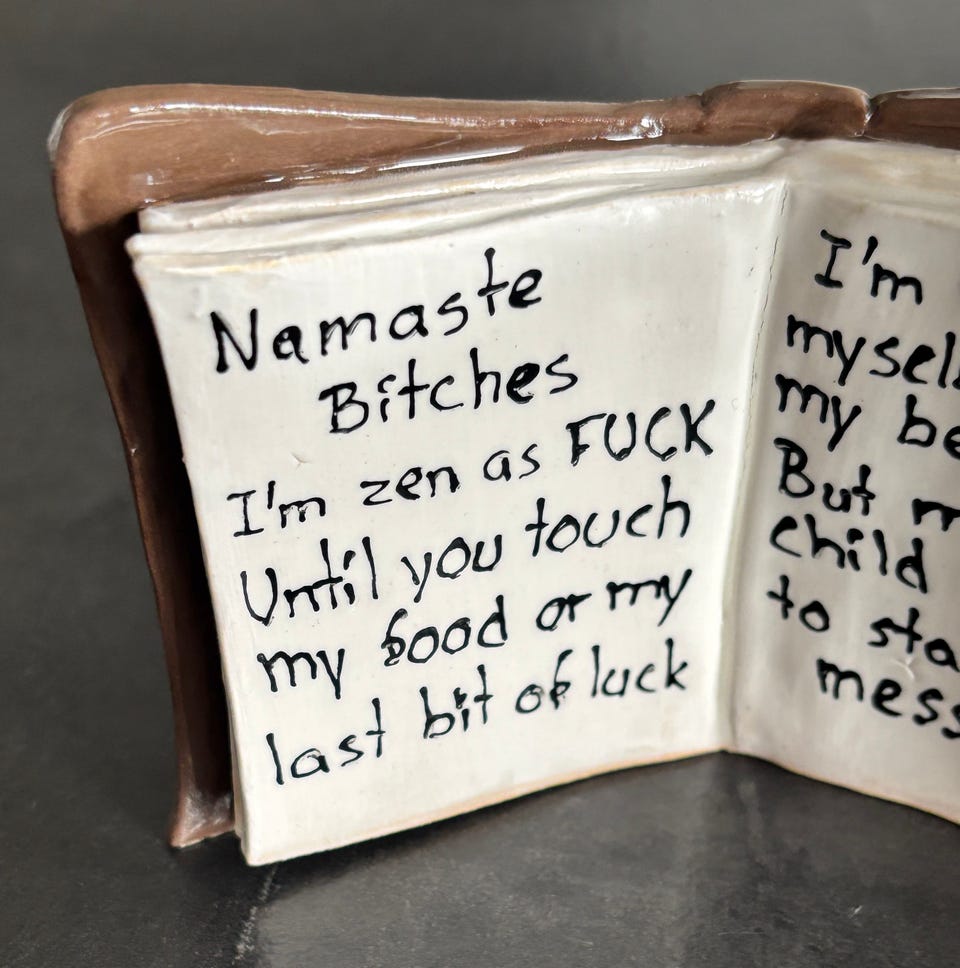 Namaste
Bitches
I'm zen as FUCK
Until you touch
my food or my
last bit of luck
I'm
my
But
child
to